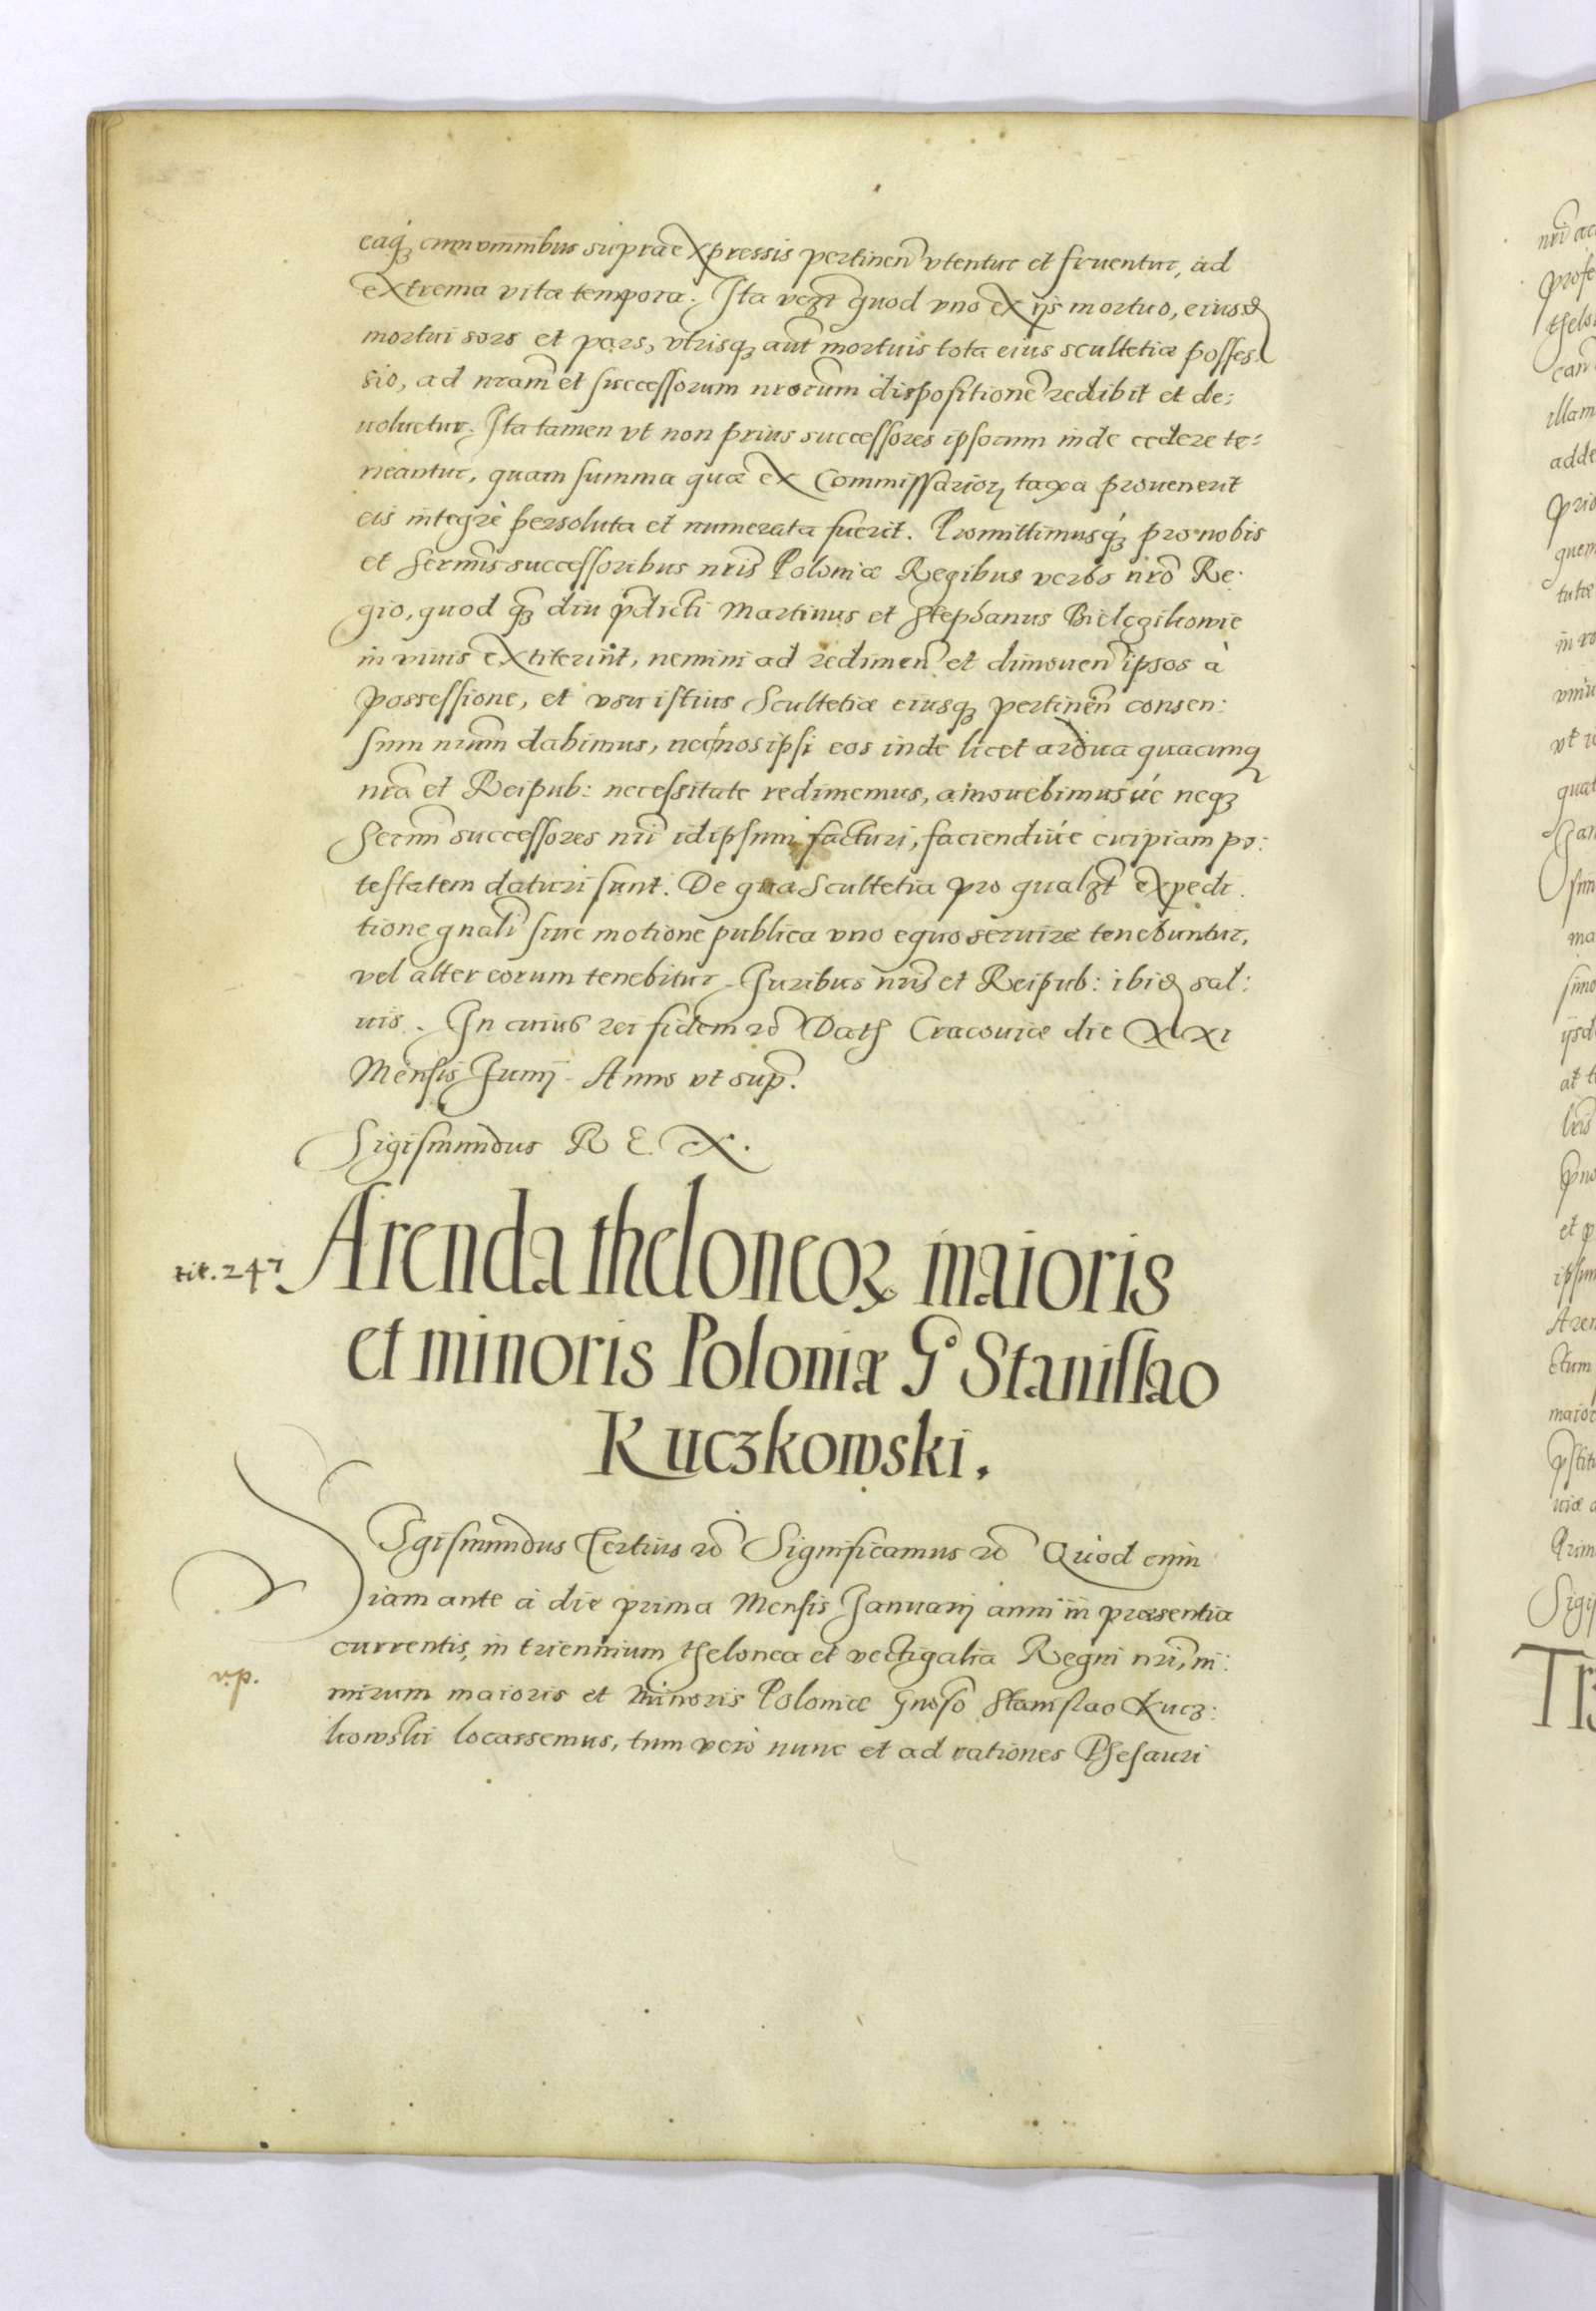 eaq₃ cum omnibus supra expressis pertinen̄ vtentur et fruentur, ad
extrema vitæ tempora. Ita vezt quod vno ex ijs mortuo, eiusd
mortui sors et pars, vtrisq₃ aut mortuis tota eius scultetiæ posses
sio, ad nram et successorum nrorum dispositionē redibit et de:
uoluetur. Ita tamen vt non prius successores ipsorum inde cedere te:
neantur, quam summa quæ ex Commissarioꝝ taxa prouenerit
eis integrè persoluta et numerata fuerit. Promittimusq₃ pro nobis
et Sermis successoribus nris Poloniæ Regibus verbo nro Re:
gio, quod q₃ diu pdicti Martinus et Stephanus Bielegikowie
in viuis extiterint, nemini ad redimen̄ et dimouen̄ ipsos à
possessione, et vsu istius Scultetiæ eiusq₃ pertinen̄ consen:
sum nrum dabimus, nec nos ipsi eos inde licet ardua quacunq₃
nra et Reipub: necessitate redimemus, amouebimusúe neq₃
Sermi successores nri id ipsum facturi, faciendiúe cuipiam po:
testatem daturi sunt. De qua Scultetia pro qualzt expedi:
tione gnali siue motione publica vno equo seruire tenebuntur,
vel alter eorum tenebitur. Juribus nris et Reipub: ibid sal:
uis. In cuius rei fidem rc Dath Cracouiæ die XXI
Mensis Junij Anno vt sup.
Sigismundus R E X.
tit. 247 Arenda theloneoꝝ maioris
et minoris Poloniæ G° Stanislao
Kuczkowski.
Sigismundus Tertius rc Significamus rc Quod cum
iam ante à die prima Mensis Januarij anni in præsentia
currentis, in triennium thelonea et vectigalia Regni nri, ni:
v.p. mirum maioris et minoris Poloniæ Gnoso Stanislao Kucz:
kowski locassemus, tum verò nunc et ad rationes Thesauri